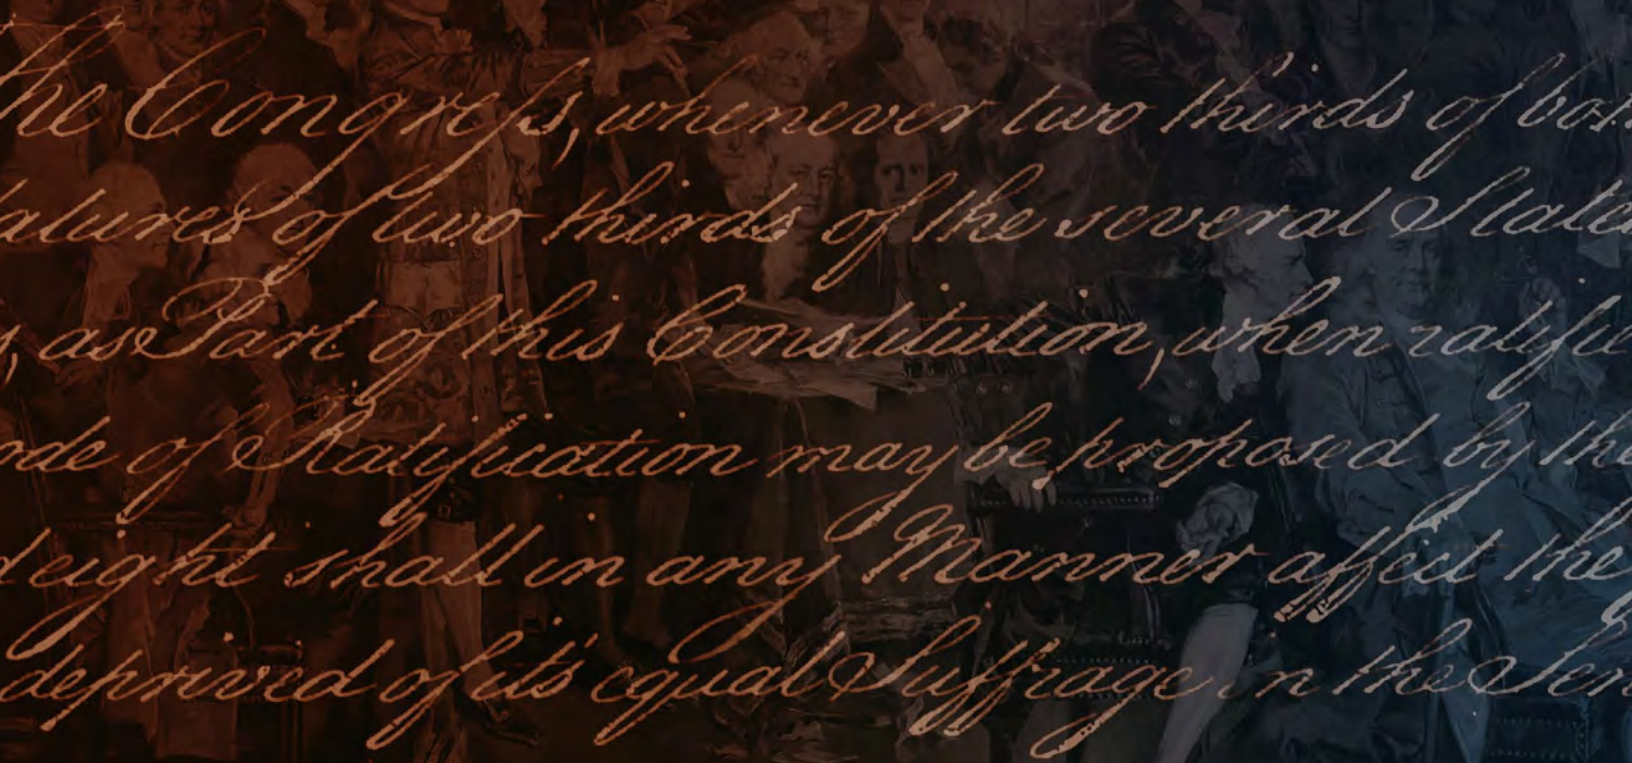 he Congreſs, whenever two thirds of bot
atures of two thirds of the several State
, as Part of this Constitution, when ratifie
ode of Ratification may be proposed by the
d eight shall in any Manner affect the
deprived of it's equal Suffrage in the Sen